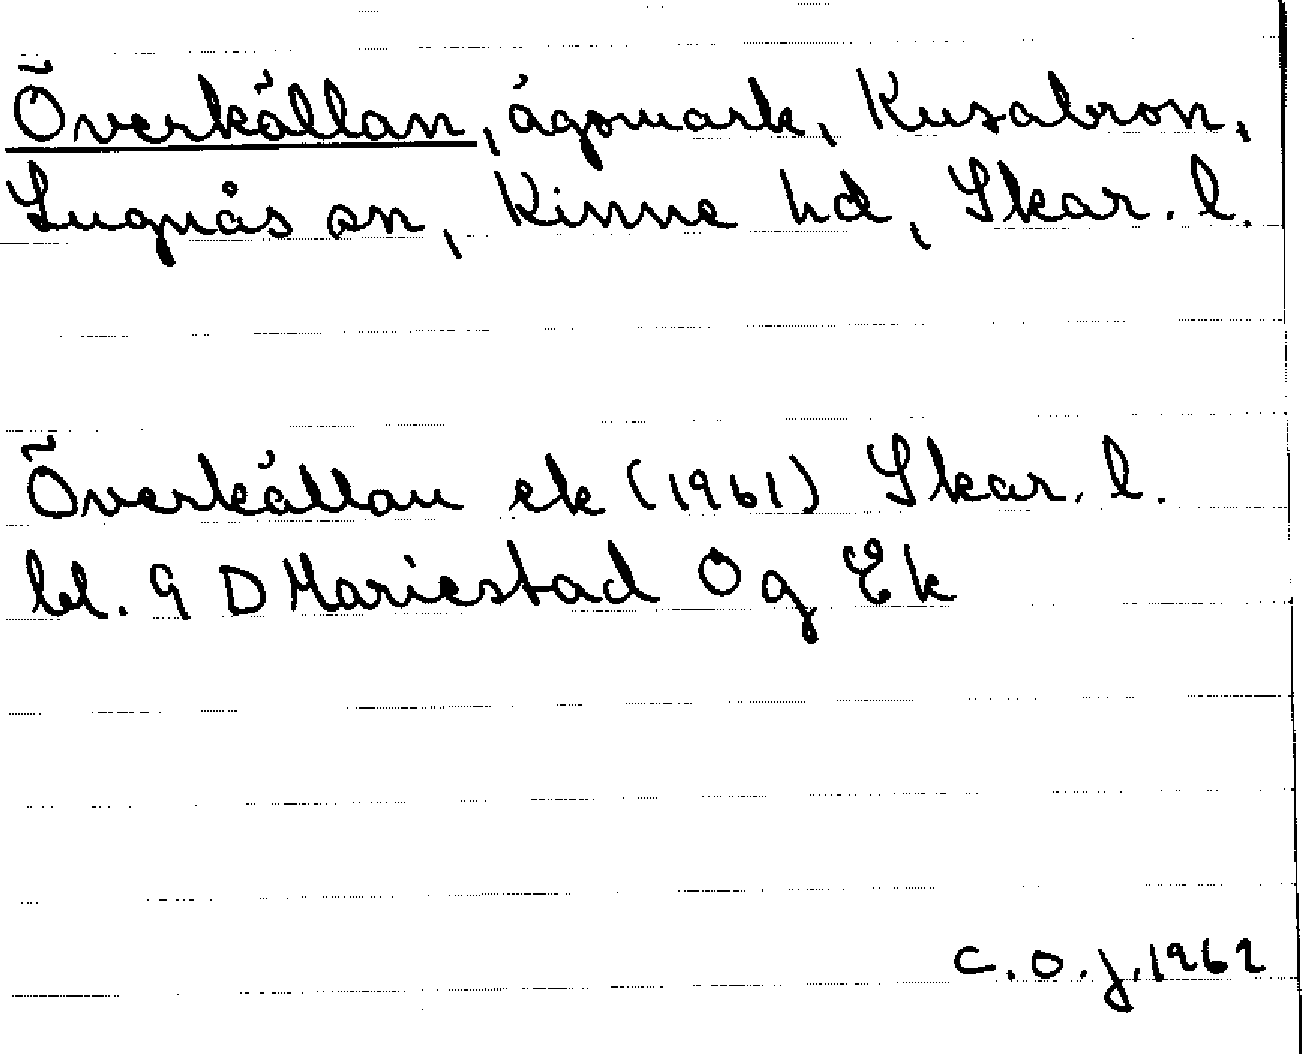 Överkällan, ägomark, Kusabron,
Lugnås sn, Kinne hd, Skar. l.
Överkällan ek (1961) Skar. l.
bl. 9 D Mariestad O g Ek
C.O.J. 1962